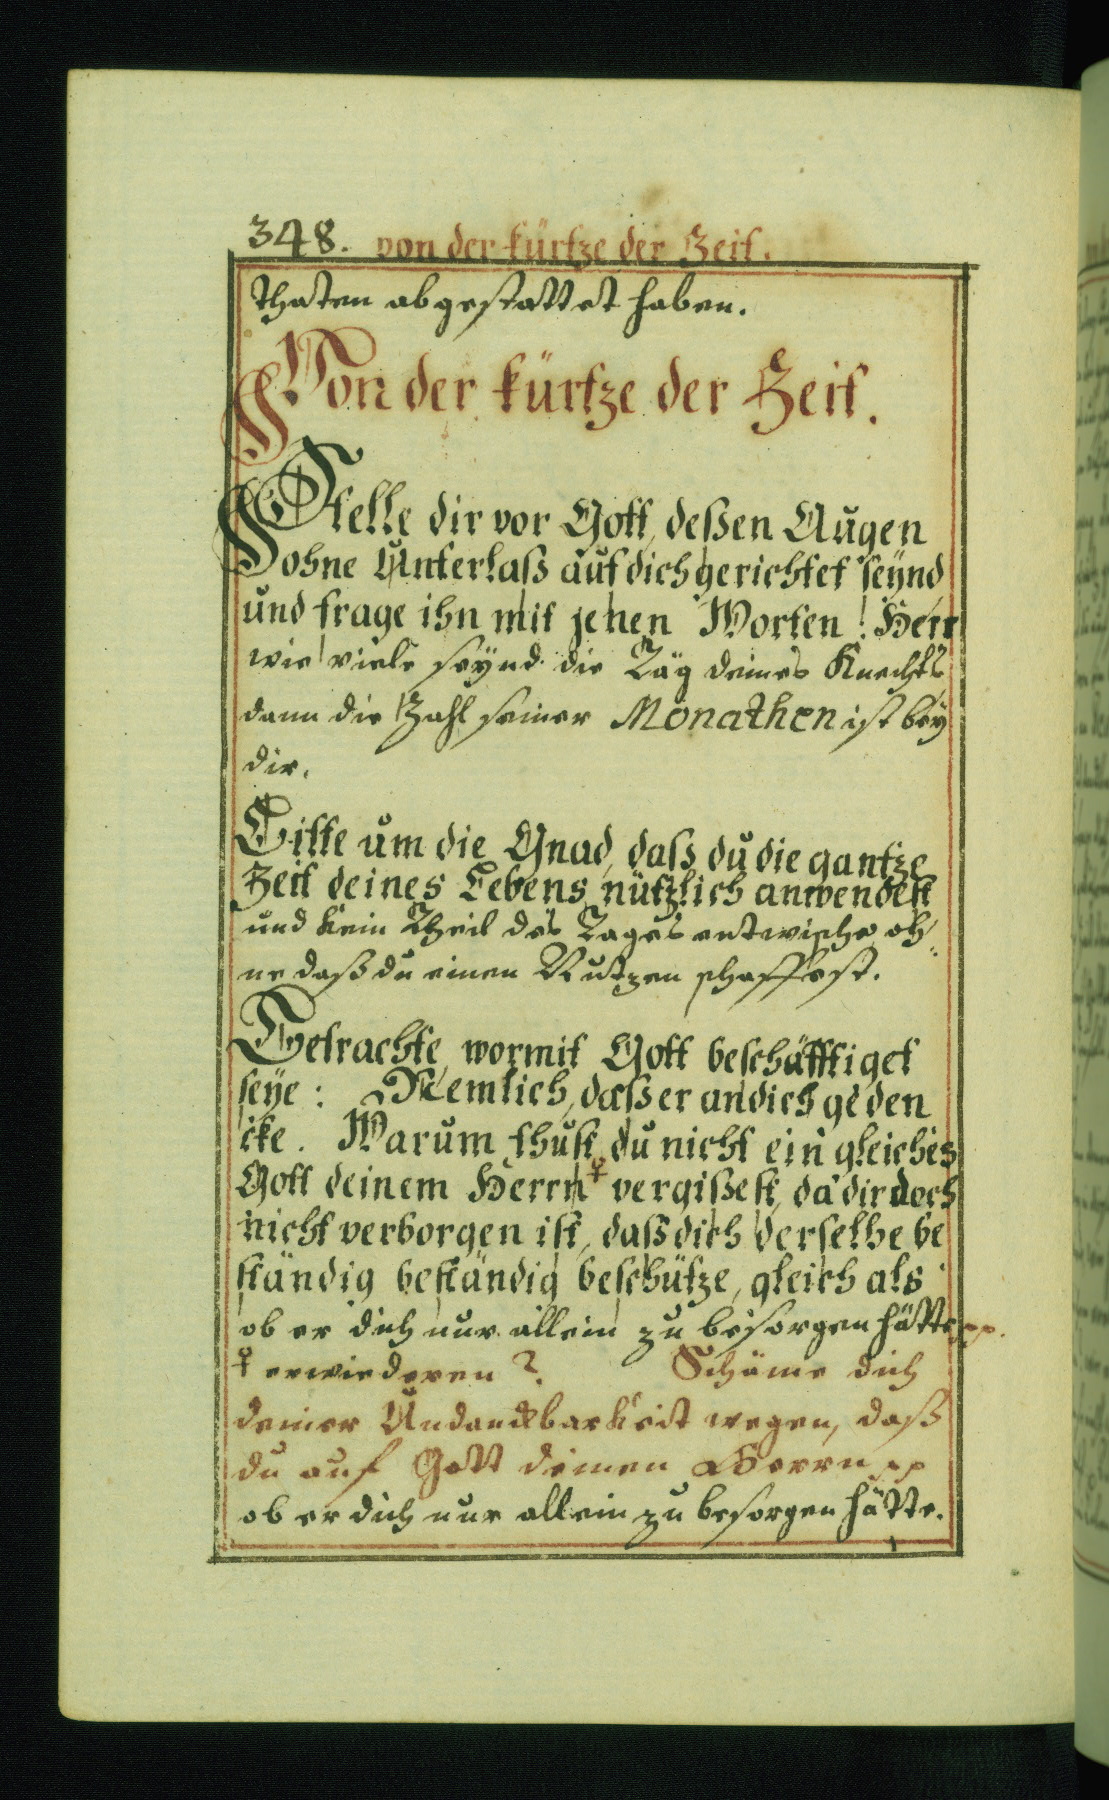 348. von der kürtze der Zeit.
thaten abgestattet haben.
Von der kürtze der Zeit.
Stelle dir vor Gott, deßen Augen
ohne Unterlaß auf dich gerichtet seÿnd
und frage ihn mit jenen Worten! Herr
wie viele seÿnd die Täg deines Knechts
dann die Zahl seiner Monathen ist beÿ
dir.
Bitte um die Gnad, daß du die gantze
Zeit deines Lebens nützlich anwendest
und kein Theil des Tages entwische, oh¬
ne daß du einen Nutzen schaffest.
Betrachte, wormit Gott beschäfftiget
seÿe: Nemlich, daß er an dich geden
cke. Warum thust du nicht ein gleiches
Gott deinem Herrn ☿ vergißest, da dir doch
nicht verborgen ist, daß dich derselbe be
ständig beständig beschütze, gleich als
ob er dich nur allein zu besorgen hätte pp.
☿ erwiederen? Schäme dich
deiner Undanckbarkeit wegen, daß
du auf Gott deinen Herrn pp
ob er dich nur allein zu besorgen hätte.